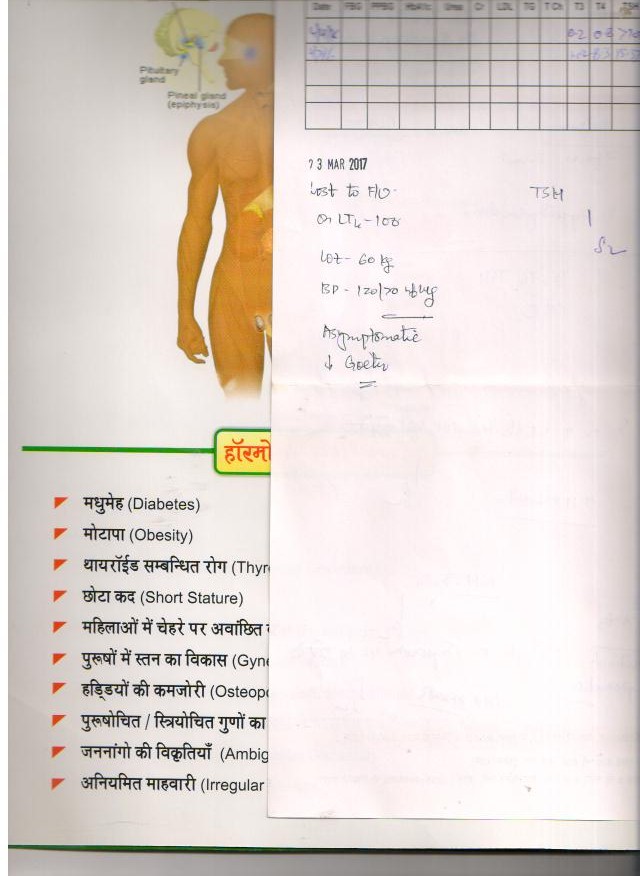 Pituitary
gland
Pineal gland
(epiphysis)
Date FBG PPBG HbA1c Urea Cr LDL TG T Ch T3 T4 TSH
0.2
23 MAR 2017
Lost to F/U.
TSH
on LT4 - 100
60 kg
BP - 120/70
Asymptomatic
↓ Goiter
मधुमेह (Diabetes)
मोटापा (Obesity)
थायरॉईड सम्बन्धित रोग (Thyr
छोटा कद (Short Stature)
महिलाओं में चेहरे पर अवांछित
पुरूषों में स्तन का विकास (Gyne
हड्डियों की कमजोरी (Osteop
पुरूषोचित / स्त्रियोचित गुणों का
जननांगो की विकृतियाँ (Ambig
अनियमित माहवारी (Irregular